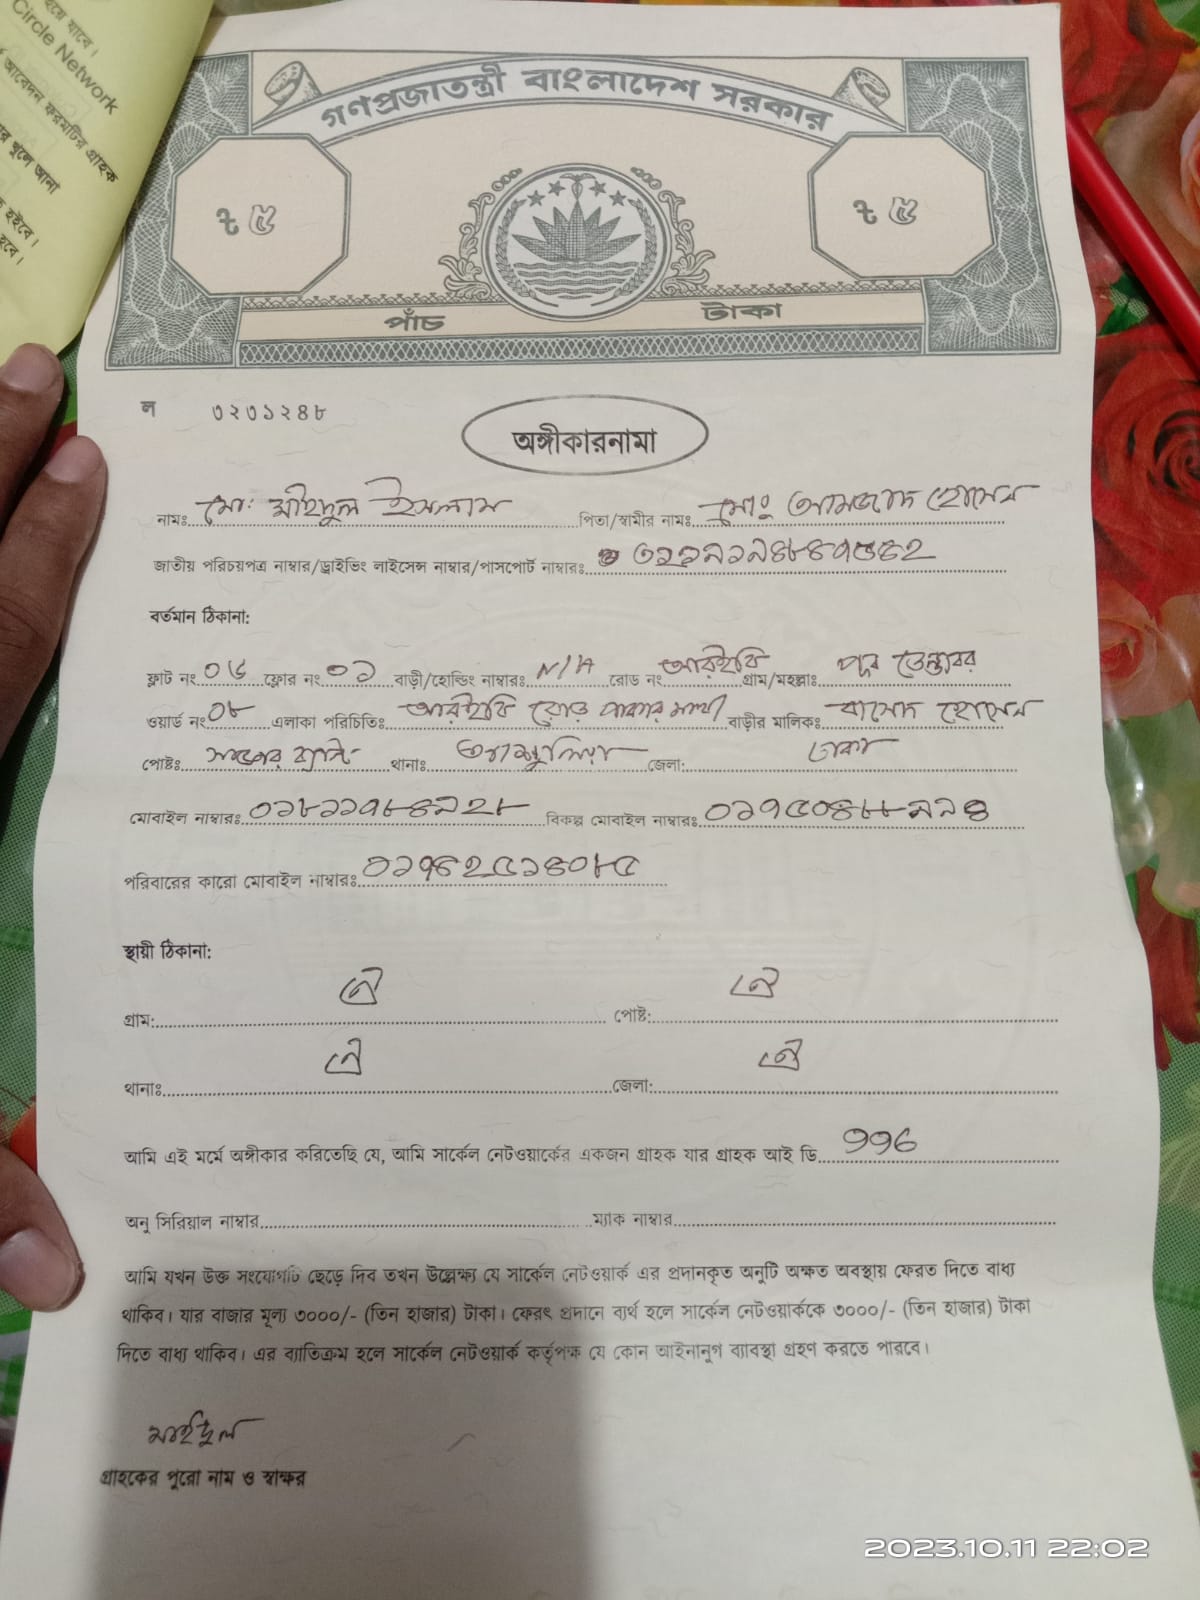 হয়ে যাবে।
Circle Network
আবেদন ফরমটির গ্রাহক
খুলে আনা
হইবে।
হবে।
গণপ্রজাতন্ত্রী বাংলাদেশ সরকার
৳ ৫ ৳ ৫
পাঁচ টাকা
ল ৩২৩১২৪৮
অঙ্গীকারনামা
নামঃ মোঃ মাইদুল ইসলাম পিতা/স্বামীর নামঃ মোঃ আমজাদ হোসেন
জাতীয় পরিচয়পত্র নাম্বার/ড্রাইভিং লাইসেন্স নাম্বার/পাসপোর্ট নাম্বারঃ
বর্তমান ঠিকানা:
ফ্লাট নং ০৬ ফ্লোর নং ০১ বাড়ী/হোল্ডিং নাম্বারঃ N/A রোড নং আরইবি গ্রাম/মহল্লাঃ
ওয়ার্ড নং ০৮ এলাকা পরিচিতিঃ আরইবি রোড পাকার মাথা বাড়ীর মালিকঃ হোসেন
পোষ্টঃ থানাঃ আশুলিয়া জেলা: ঢাকা
মোবাইল নাম্বারঃ ০১৮১১৭৮৪৯২৮ বিকল্প মোবাইল নাম্বারঃ ০১৭৫০৪৮৮৯৯৪
পরিবারের কারো মোবাইল নাম্বারঃ ০১৭৪২৫১৪০৮৫
স্থায়ী ঠিকানা:
গ্রাম: ঐ পোষ্ট: ঐ
থানাঃ ঐ জেলা: ঐ
আমি এই মর্মে অঙ্গীকার করিতেছি যে, আমি সার্কেল নেটওয়ার্কের একজন গ্রাহক যার গ্রাহক আই ডি 996
অনু সিরিয়াল নাম্বার ম্যাক নাম্বার
আমি যখন উক্ত সংযোগটি ছেড়ে দিব তখন উল্লেক্ষ্য যে সার্কেল নেটওয়ার্ক এর প্রদানকৃত অনুটি অক্ষত অবস্থায় ফেরত দিতে বাধ্য
থাকিব। যার বাজার মূল্য ৩০০০/- (তিন হাজার) টাকা। ফেরৎ প্রদানে ব্যর্থ হলে সার্কেল নেটওয়ার্ককে ৩০০০/- (তিন হাজার) টাকা
দিতে বাধ্য থাকিব। এর ব্যাতিক্রম হলে সার্কেল নেটওয়ার্ক কর্তৃপক্ষ যে কোন আইনানুগ ব্যাবস্থা গ্রহণ করতে পারবে।
মাইদুল
গ্রাহকের পুরো নাম ও স্বাক্ষর
2023.10.11 22:02